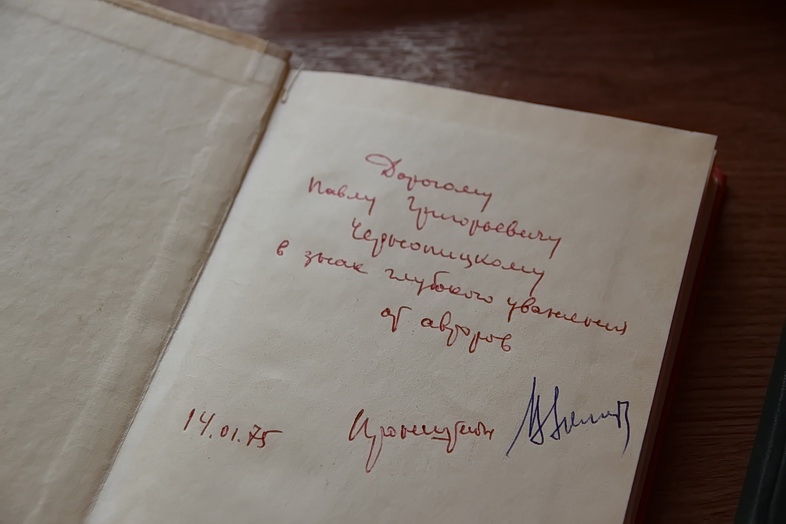 Дорогому
Павлу Григорьевичу
Чернопицкому
в знак глубокого уважения
от авторов
14.01.75